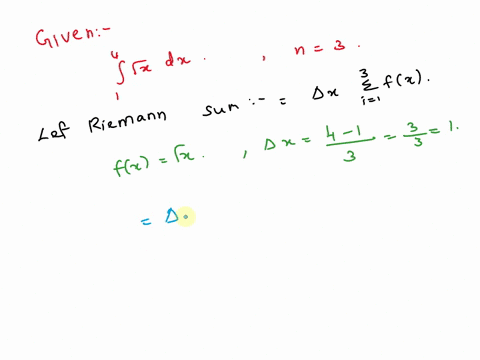 Given:-
∫₁⁴ √x dx . , n = 3 .
Lef Riemann sum :- = Δx ∑³ᵢ₌₁ f(x).
f(x) = √x . , Δx = (4-1)/3 = 3/3 = 1.
= Δ